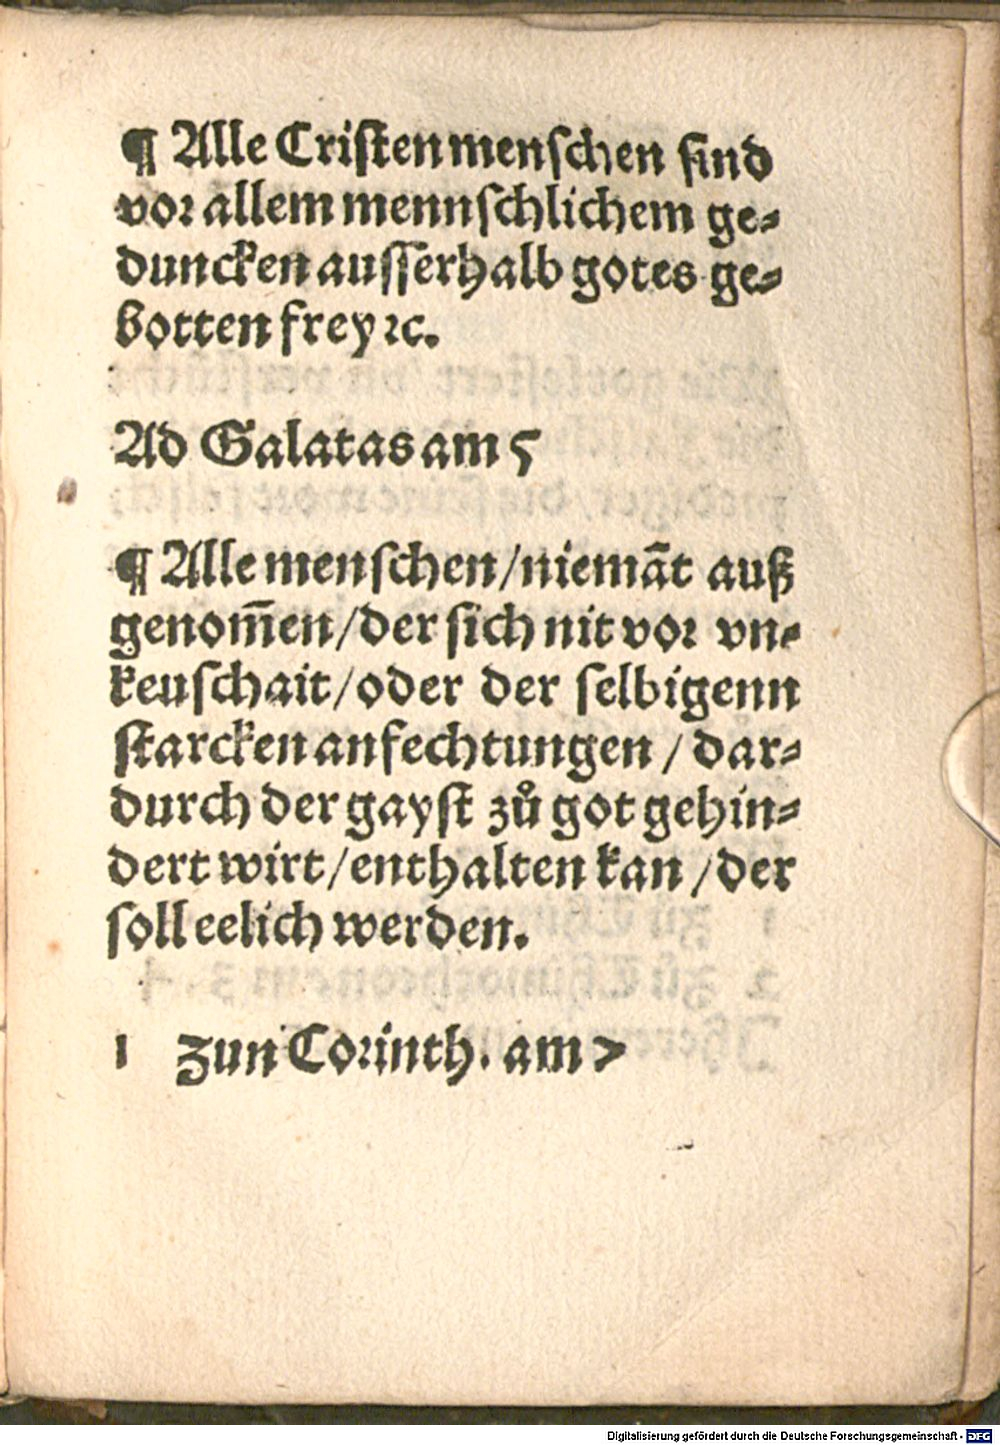 ¶ Alle Cristen menschen sind
vor allem mennschlichem ge⸗
duncken ausserhalb gotes ge⸗
botten frey ⁊c.
Ad Galatas am 5
¶ Alle menschen/niemãt auß
genom̃en/der sich nit vor vn⸗
keuschait/oder der selbigenn
starcken anfechtungen / dar⸗
durch der gayst zů got gehin⸗
dert wirt/enthalten kan /der
soll eelich werden.
1 zun Corinth. am 7
Digitalisierung gefördert durch die Deutsche Forschungsgemeinschaft - DFG